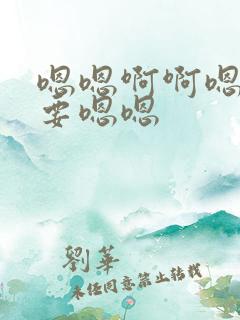 嗯嗯啊啊嗯
要嗯嗯
劉華
未经同意禁止转载